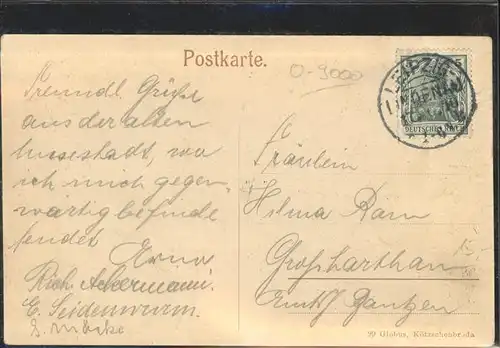 Postkarte.
0-9000
LEIPZIG
DEUTSCHES REICH
Freundl. Grüße
aus der alten
, wo
ich mich gegen-
wärtig befinde
sendet
Erna
Rich. Ackermann.
E. Seidenwurm.
Fräulein
Helma
Großharthau
Bautzen
99 Globus, Kötzschenbroda